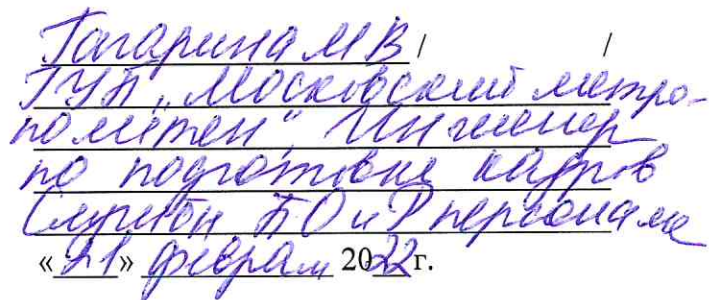 Гагарина М В / /
ГУП „Московский метро-
политен", Инженер
по подготовке кадров
Службы БО и Р персонала
«21» февраля 2022 г.